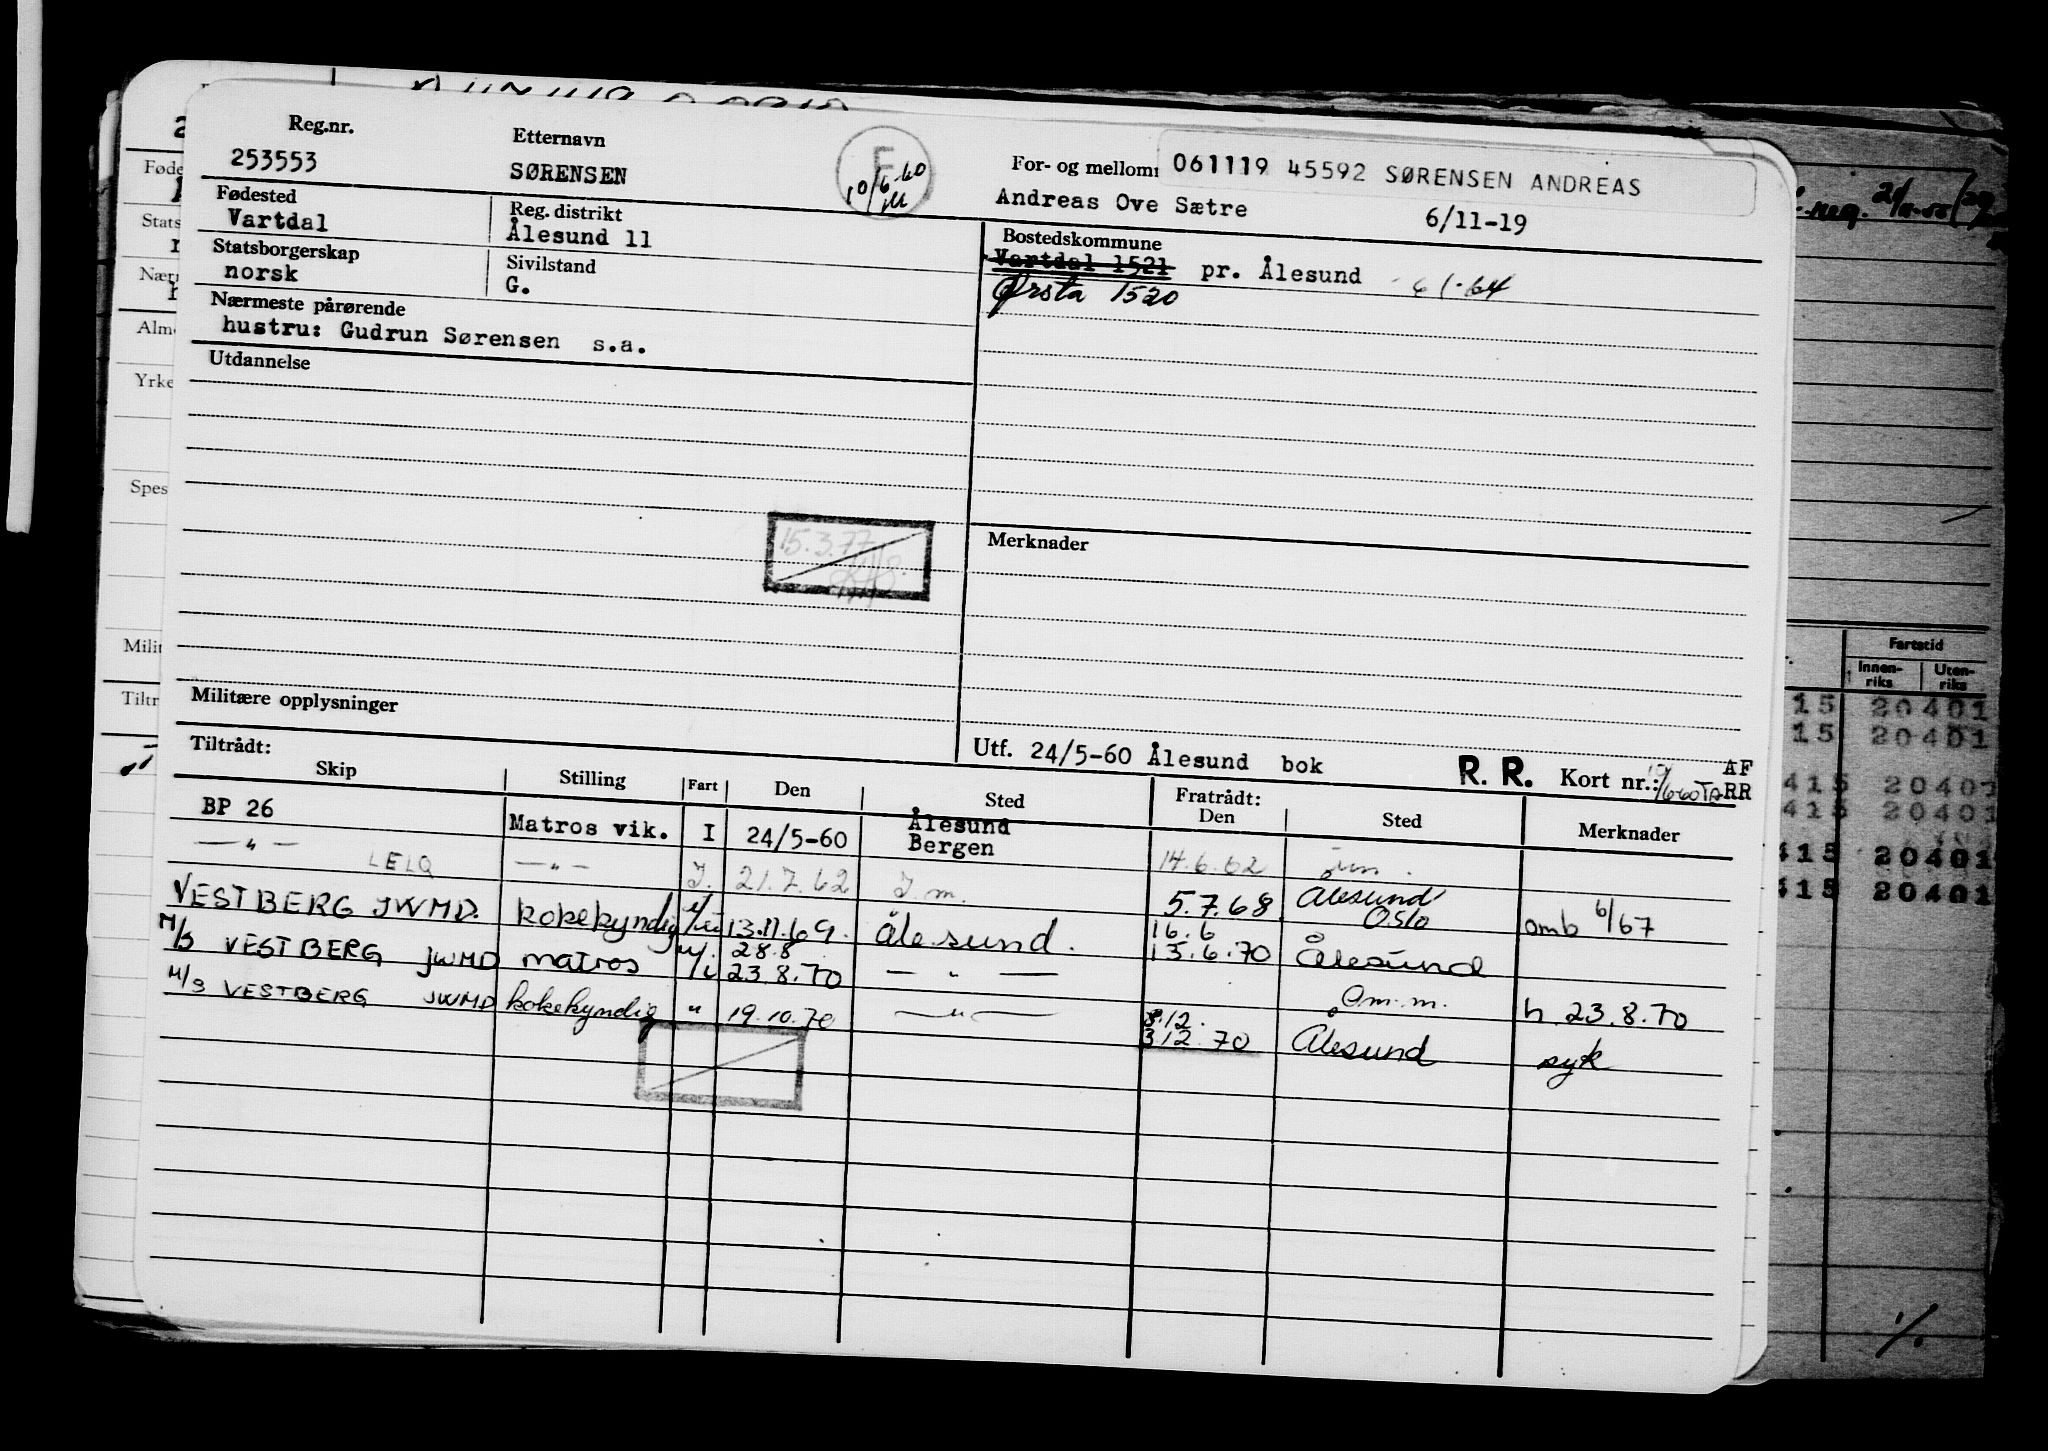 Reg.nr.
253553
Etternavn
SØRENSEN
E
10/6-60
For- og mellom
061119 45592 SØRENSEN ANDREAS
Andreas Ove Sætre
6/11-19
Fødested
Vartdal
Reg. distrikt
Ålesund 11
Statsborgerskap
norsk
Sivilstand
G.
Bostedskommune
Vartdal 1521 pr. Ålesund
Ørsta 1520
1-64
Nærmeste pårørende
hustru: Gudrun Sørensen s.a.
Utdannelse
15.3.77
Merknader
Militære opplysninger
Utf. 24/5-60 Ålesund bok
R. R. Kort nr.:
AF
RR
Tiltrådt:
Skip Stilling Fart Den Sted Fratrådt: Den Sted Merknader
BP 26 Matros vik. I 24/5-60 Ålesund
Bergen
— " — LELQ — " — I. 21.7.62 I.m. 14.6.62
5.7.68 Ålesund
VESTBERG JWMD. kokekyndig 13.11.69. Ålesund. 16.6 Oslo omb 6/67
M/S VESTBERG JWMD matros u/i 28.8 23.8.70 — " — 15.6.70 Ålesund
M/S VESTBERG JWMD kokekyndig " 19.10.70 — " — Om.m. h 23.8.70
8.12.
3 12.70 Ålesund syk
Føde
Stats
Nær
Alm
Yrke
Spes
Milit
Tiltr
Fartstid
Innen-
riks
Uten-
riks
15 20401
15 20401
415 20401
415 20401
415 20401
415 20401